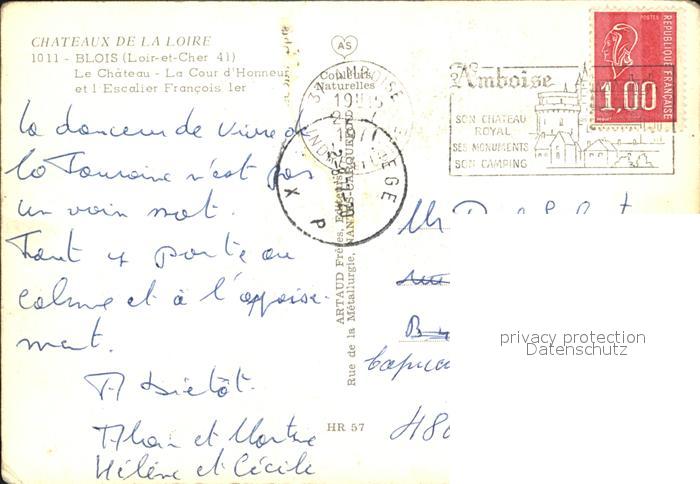 CHATEAUX DE LA LOIRE
1011 - BLOIS (Loir-et-Cher 41)
Le Château - La Cour d'Honneur
et l'Escalier François 1er
la douceur de vivre de
la Touraine n'est pas
un vain mot.
Tout y porte au
calme et à l'apaise-
ment.
A bientôt.
Alain et Martine
Hélène et Cécile
AS
Couleurs
Naturelles
AMBOISE
LIEGE
X
P
ARTAUD Frères, Editeurs
Rue de la Métallurgie, NANTES-CARQUEFOU
HR 57
Amboise
SON CHATEAU
ROYAL
SES MONUMENTS
SON CAMPING
POSTES
REPUBLIQUE FRANÇAISE
1,00
Mr
privacy protection
Datenschutz